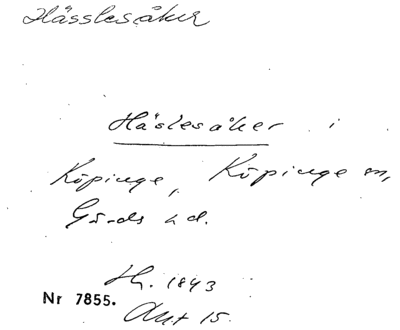 Hässlesåker
Häslesåker i
Köpinge, Köpinge sn,
Gärds hd.
H. 1843
Nr 7855.
Akt 15.